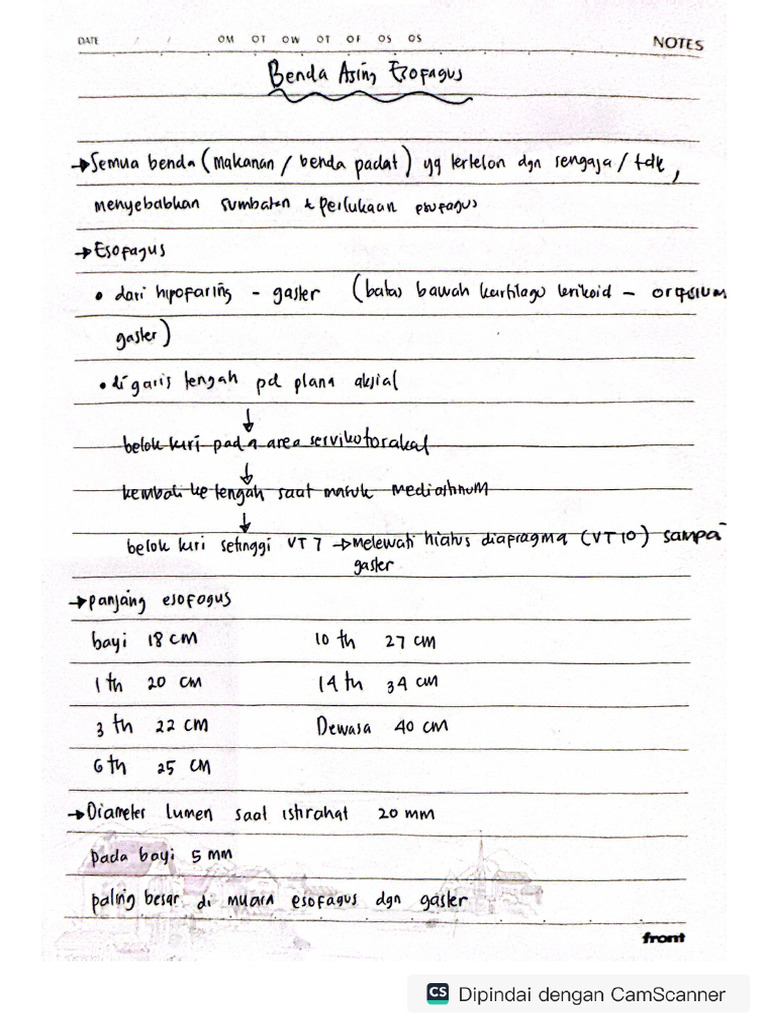 DATE / / OM OT OW OT OF OS OS NOTES
Benda Asing Esofagus
→ Semua benda (makanan / benda padat) yg tertelan dgn sengaja / tdk,
menyebabkan sumbatan & perlukaan esofagus
→ Esofagus
• dari hipofaring - gaster (batas bawah kartilago krikoid - orifisium
gaster)
• di garis tengah pd plana aksial
↓
belok kiri pada area servikotorakal
↓
kembali ke tengah saat masuk mediastinum
↓
belok kiri setinggi VT 7 → melewati hiatus diapragma (VT 10) sampai
gaster
→ panjang esofogus
bayi 18 cm 10 th 27 cm
1 th 20 cm 14 th 34 cm
3 th 22 cm Dewasa 40 cm
6 th 25 cm
→ Diameter lumen saat istirahat 20 mm
pada bayi 5 mm
paling besar di muara esofagus dgn gaster
front
CS Dipindai dengan CamScanner